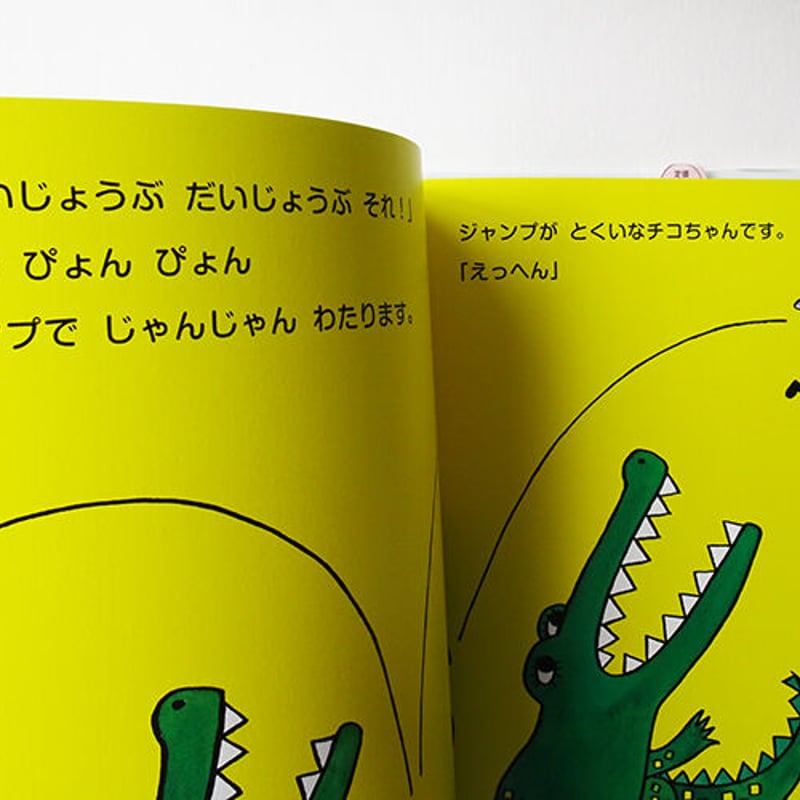 いじょうぶ だいじょうぶ それ！」
ぴょん ぴょん
プで じゃんじゃん わたります。
ジャンプが とくいなチコちゃんです。
「えっへん」
定価